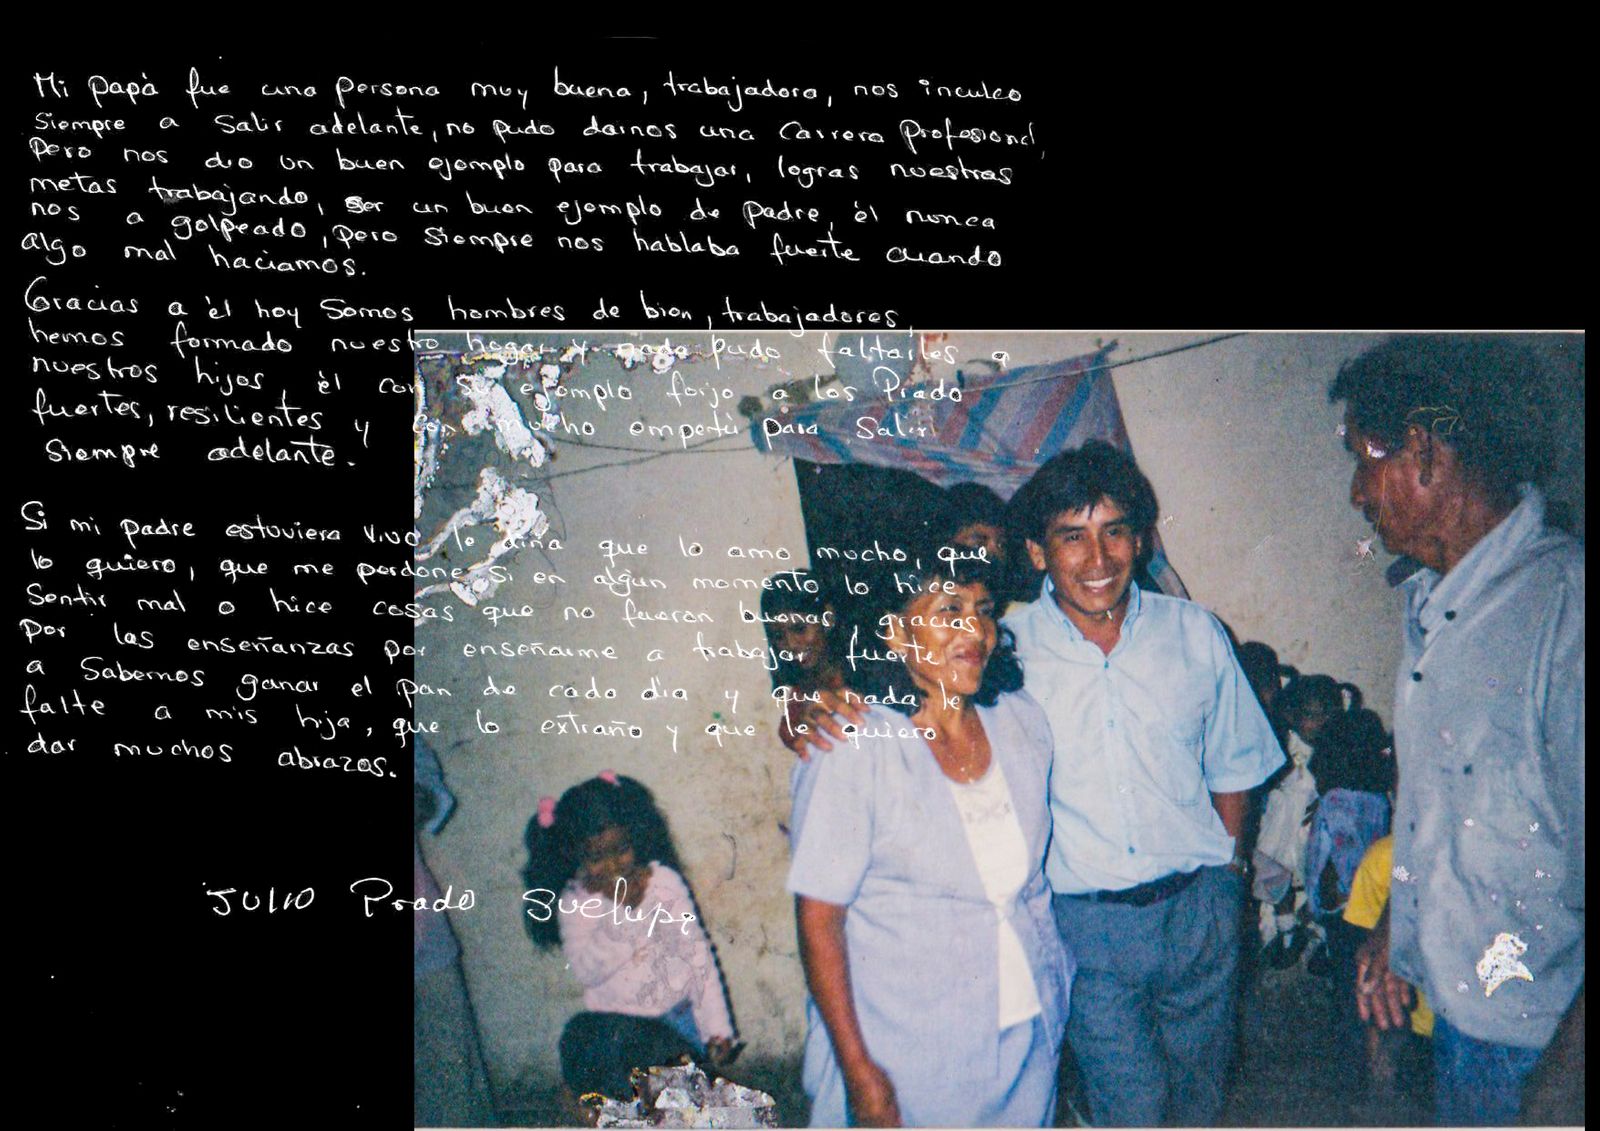 Mi papà fue una persona muy buena, trabajadora, nos inculco
siempre a salir adelante, no pudo darnos una carrera profesional,
pero nos dio un buen ejemplo para trabajar, logras nuestras
metas trabajando, ser un buen ejemplo de padre, èl nunca
nos a golpeado, pero siempre nos hablaba fuerte cuando
algo mal haciamos.
Gracias a èl hoy somos hombres de bien, trabajadores,
hemos formado nuestro hogar y nada pudo faltarles a
nuestros hijos, èl con su ejemplo forjo a los Prado
fuertes, resilientes y con mucho empetù para salir
siempre adelante.
Si mi padre estuviera vivo le diria que lo amo mucho, que
lo quiero, que me perdone si en algùn momento lo hice
sentir mal o hice cosas que no fueron buenas, gracias
por las enseñanzas por enseñarme a trabajar fuerte,
a sabernos ganar el pan de cada dìa y que nada le
falte a mis hija, que lo extraño y que le quiero
dar muchos abrazos.
JULIO Prado Suelupe